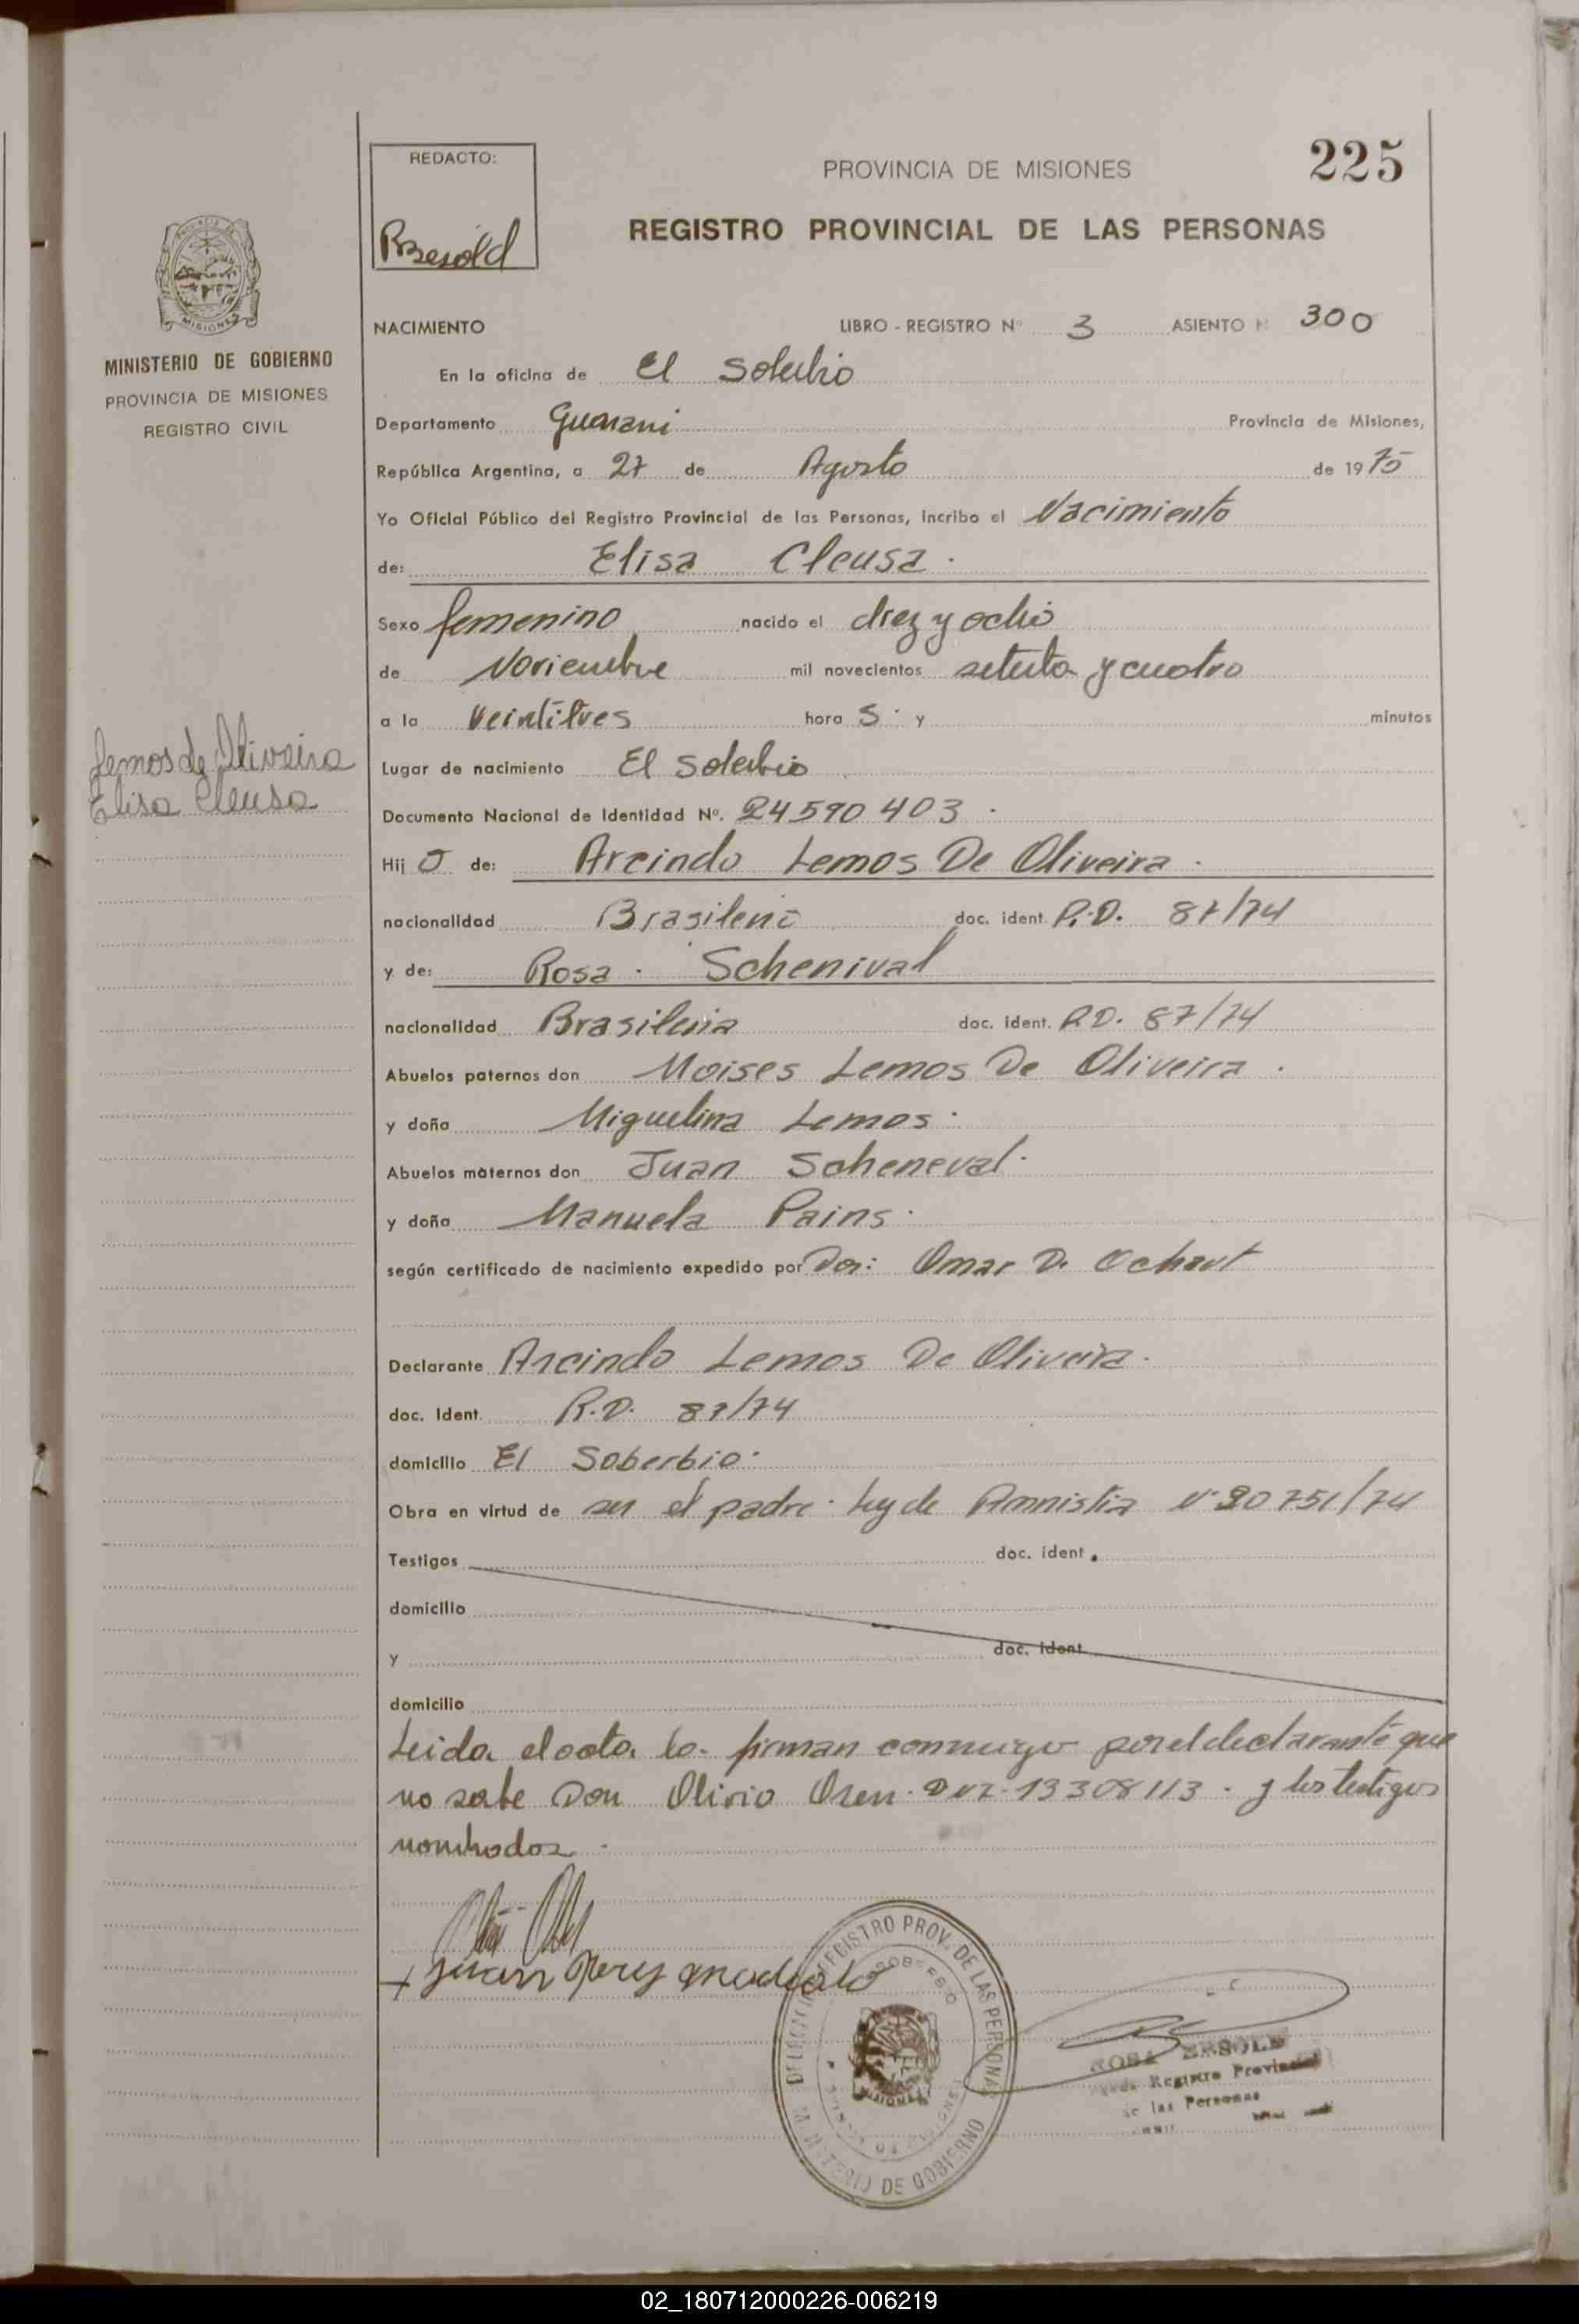 225
REDACTO:
RBesold
PROVINCIA DE MISIONES
REGISTRO PROVINCIAL DE LAS PERSONAS
MISIONES
MINISTERIO DE GOBIERNO
PROVINCIA DE MISIONES
REGISTRO CIVIL
NACIMIENTO LIBRO - REGISTRO Nº 3 ASIENTO N 300
En la oficina de El Soberbio
Departamento Guarani Provincia de Misiones,
República Argentina, a 27 de Agosto de 1975
Yo Oficial Público del Registro Provincial de las Personas, incribo el Nacimiento
de: Elisa Cleusa.
Sexo femenino nacido el diez y ocho
de Noviembre mil novecientos setenta y cuatro
a la veintitres hora s. y minutos
Lemos de Oliveira
Elisa Cleusa
Lugar de nacimiento El Soberbio
Documento Nacional de Identidad Nº. 24590403.
Hij de: Arcindo Lemos De Oliveira.
nacionalidad Brasileño doc. ident. R.D. 87/74
y de: Rosa. Schenival
nacionalidad Brasileña doc. ident. R.D. 87/74
Abuelos paternos don Moises Lemos De Oliveira.
y doña Miguelina Lemos.
Abuelos maternos don Juan Scheneval.
y doña Manuela Pains.
según certificado de nacimiento expedido por Omar D. Ochaut
Declarante Arcindo Lemos De Oliveira.
doc. Ident. R.D. 87/74
domicilio El Soberbio.
Obra en virtud de ser el padre. Ley de Amnistia Nº 20751/74
Testigos doc. ident.
domicilio
y doc. ident
domicilio
Leida el acta. la. firman conmigo por el declarante que
no sabe Don Olivio 13308113. y los testigos
nombrados.
Juan
DELEGACION REGISTRO PROV. DE LAS PERSONAS
MINISTERIO DE GOBIERNO
SOBERBIO
MISIONES
ROSA BESOLD
Registro Provincial
de las Personas
02_180712000226-006219